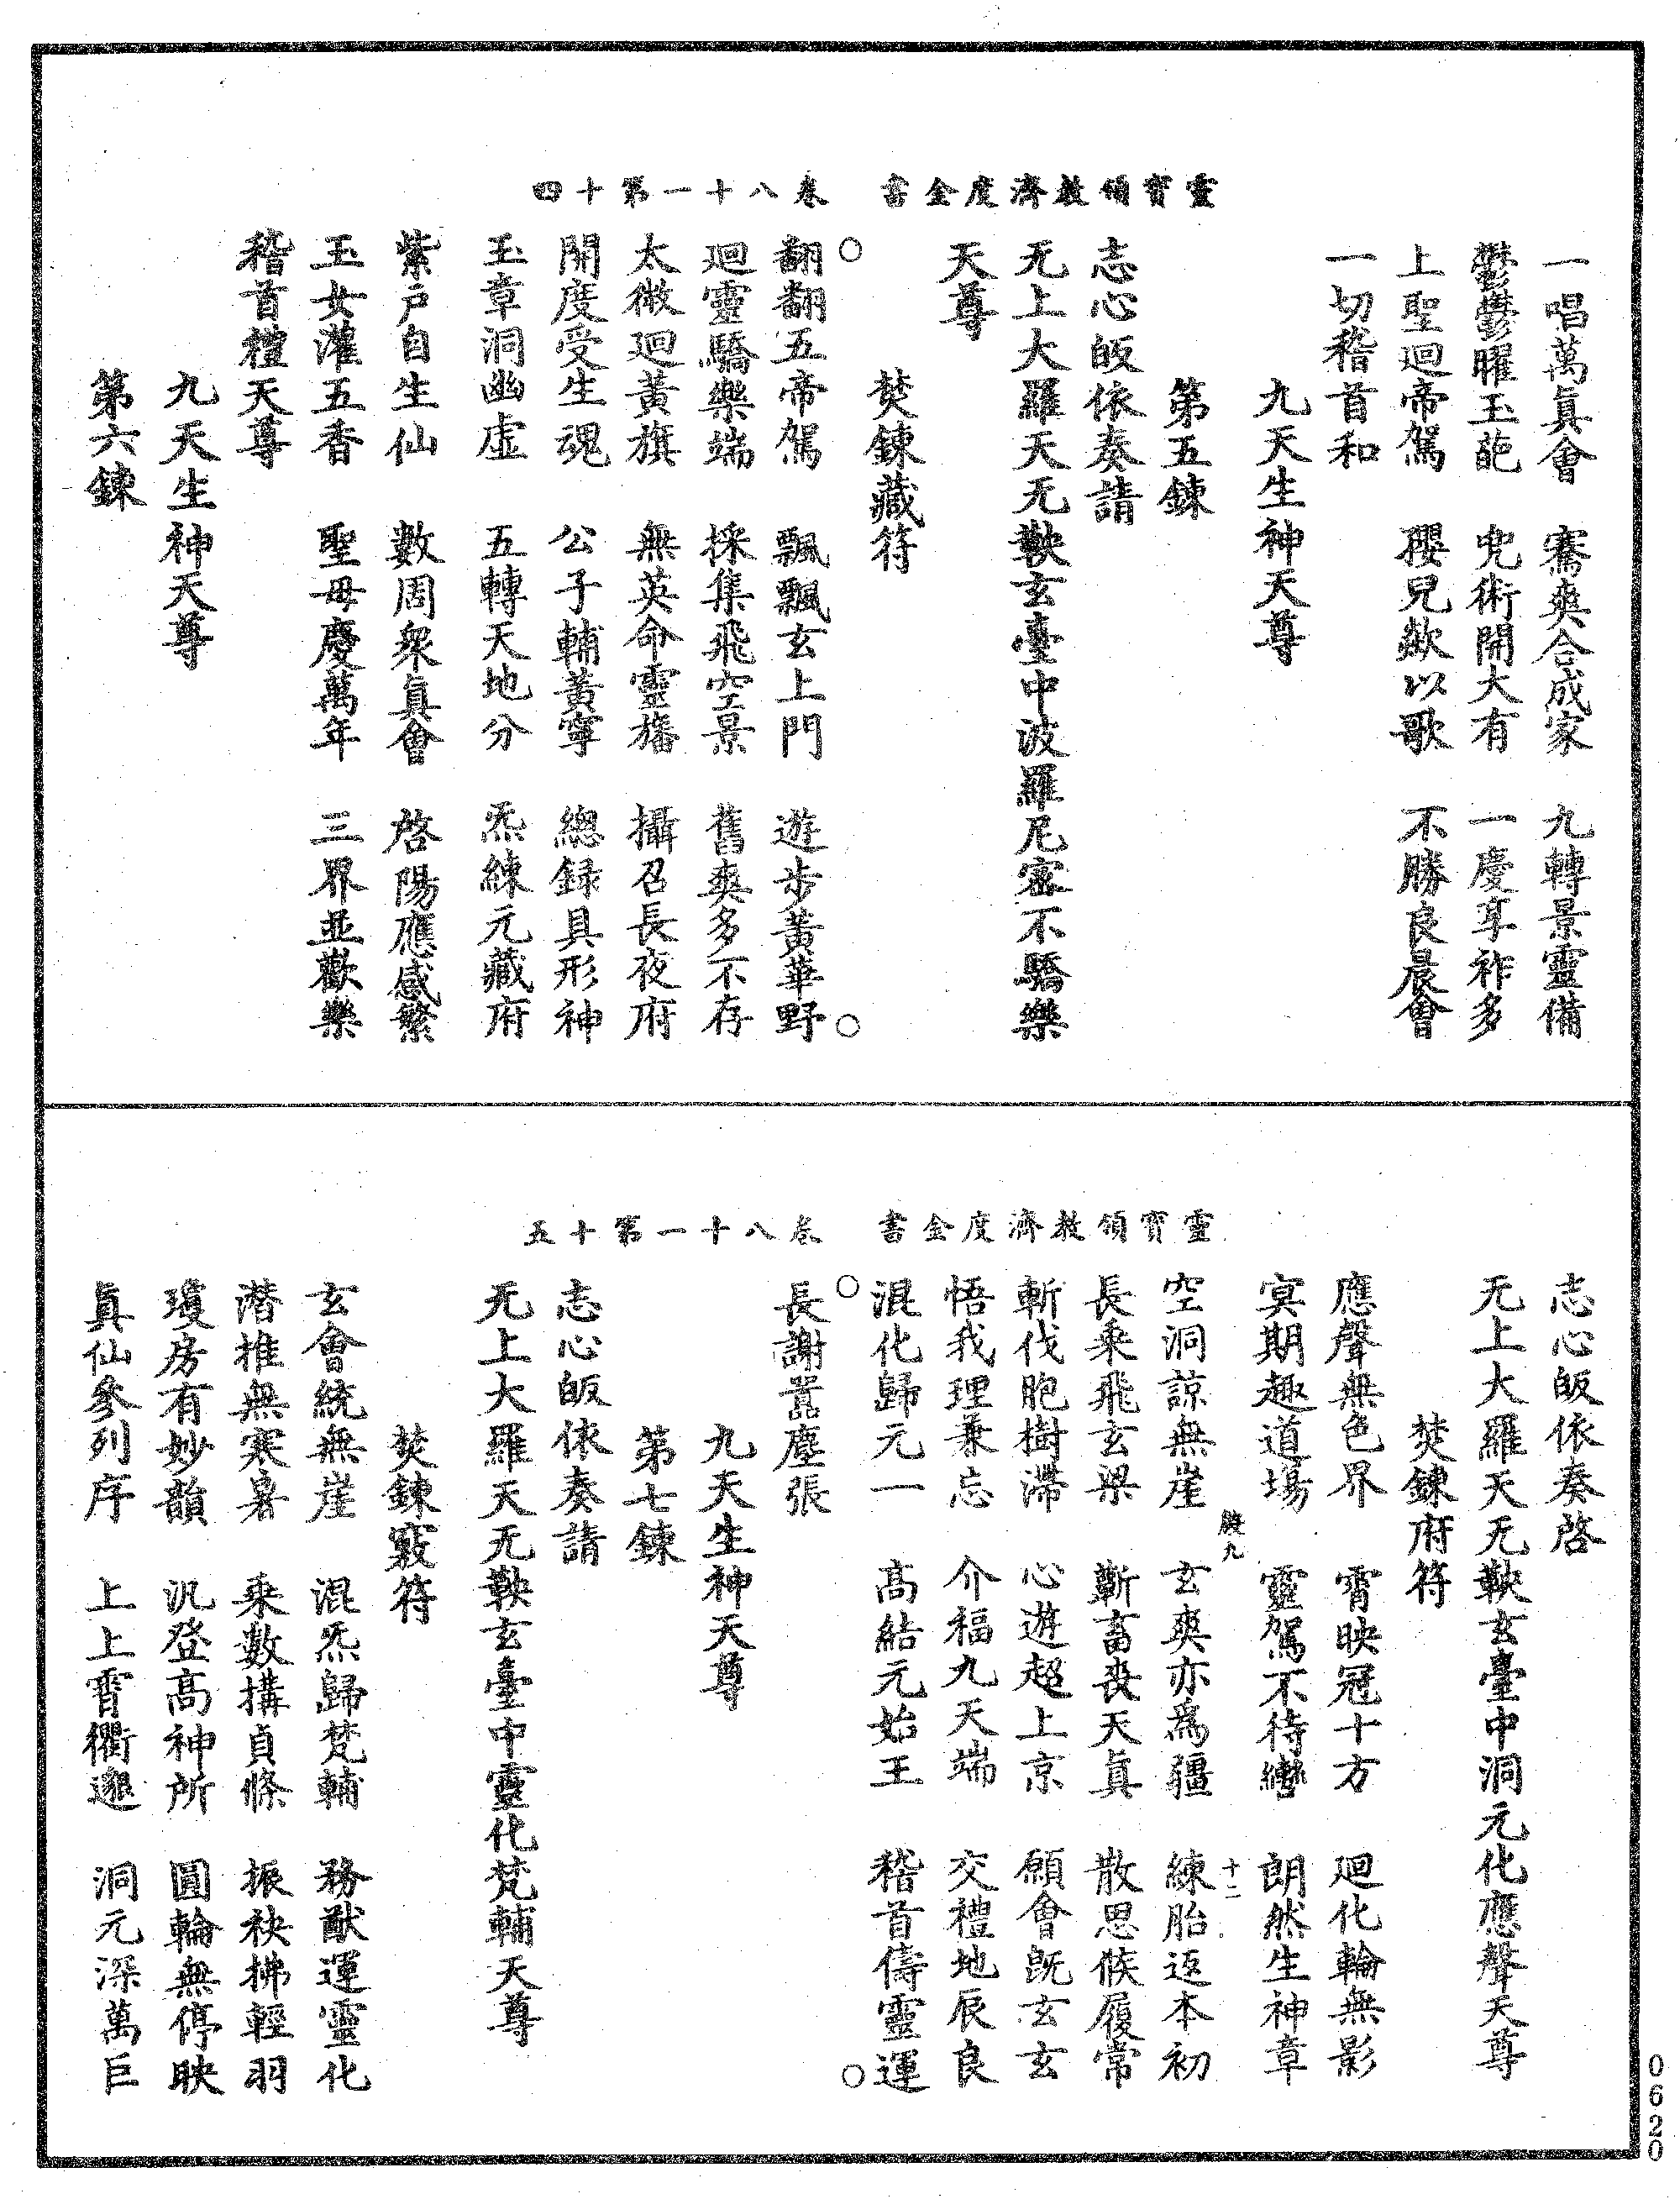 一唱萬眞會　騫爽合成家　九轉景靈備
鬱鬱曜玉葩　兜術開大有　一慶享祚多
上聖迴帝駕　櫻兒歘以歌　不勝良晨會
一切稽首和
九天生神天尊
第五鍊
志心皈依奏請
无上大羅天无鞅玄臺中波羅尼密不驕樂
天尊
焚鍊藏符
靈寶領教濟度金書　卷八十一第十四
翻翻五帝駕　飄飄玄上門　遊步黃華野
迴靈驕樂端　採集飛空景　舊爽多不存
太微迴黃旗　無英命靈旛　攝召長夜府
開度受生魂　公子輔黃寧　總録具形神
玉章洞幽虛　五轉天地分　炁練元藏府
紫戶自生仙　數周衆眞會　啓陽應感繁
玉女灌五香　聖母慶萬年　三界並歡樂
稽首禮天尊
九天生神天尊
第六鍊
志心皈依奏啓
无上大羅天无鞅玄臺中洞元化應聲天尊
焚鍊府符
應聲無色界　霄映冠十方　迴化輪無影
冥期趣道場　靈駕不待轡　朗然生神章
空洞諒無崖　玄爽亦爲疆　練胎返本初
長乘飛玄梁　蘄畜喪天眞　散思候履常
斬伐胞樹滯　心遊超上京　願會旣玄玄
悟我理兼忘　介福九天端　交禮地辰良
混化歸元一　高結元始王　稽首儔靈運
靈寶領教濟度金書　卷八十一第十五
九
十二
長謝囂塵張
九天生神天尊
第七鍊
志心皈依奏請
无上大羅天无鞅玄臺中靈化梵輔天尊
焚鍊竅符
玄會統無崖　混炁歸梵輔　務猷運靈化
潛推無寒暑　乘數搆貞條　振袂拂輕羽
瓊房有妙韻　汎登高神所　圓輪無停映
眞仙參列序　上上霄衢邈　洞元深萬巨
0620